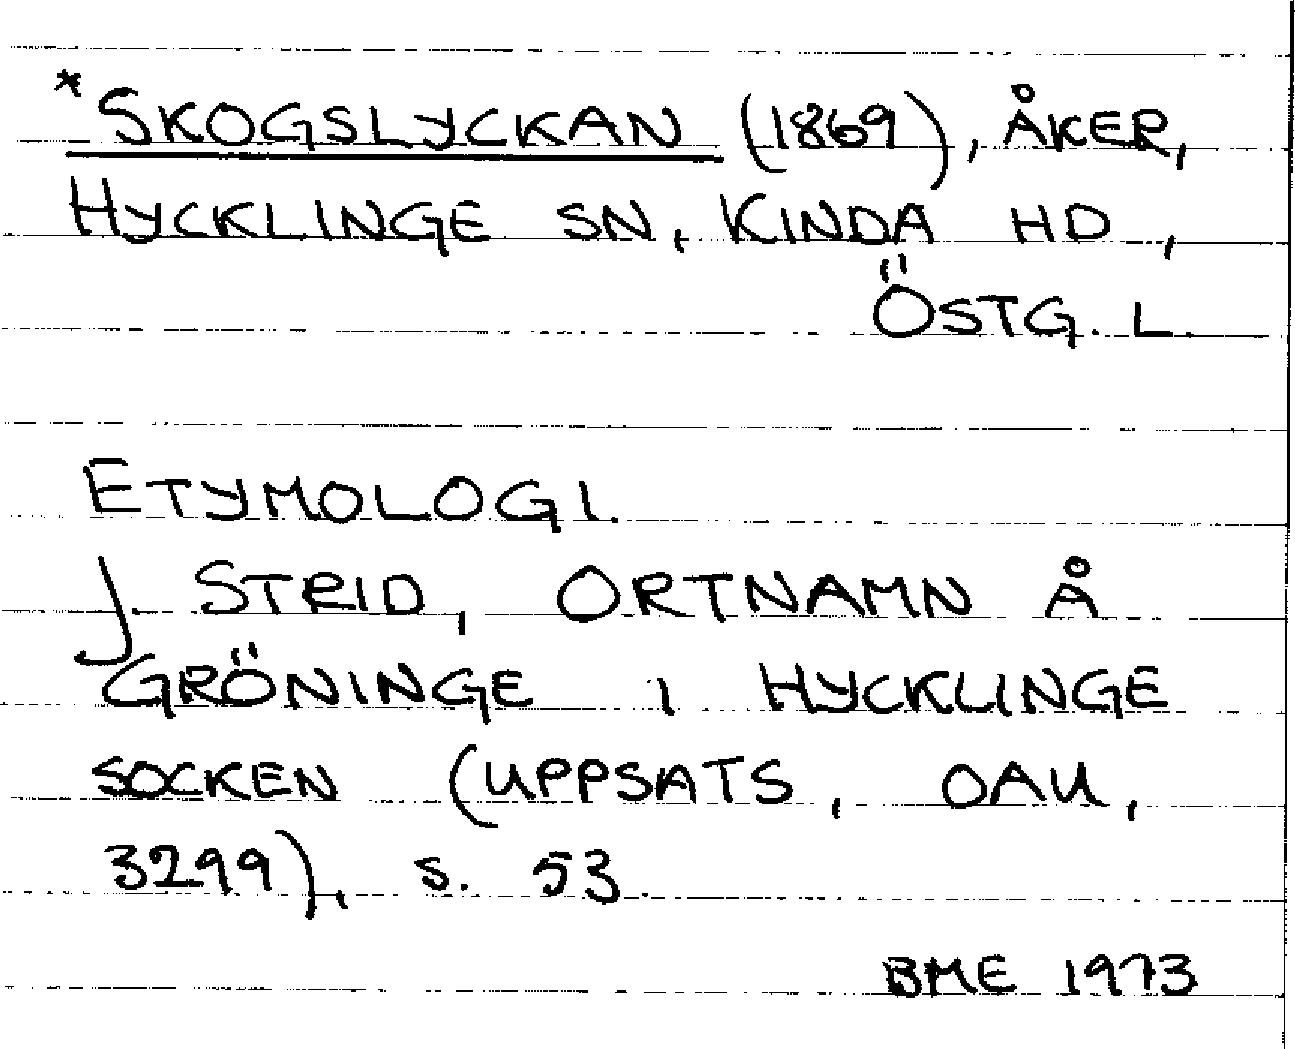 *SKOGSLYCKAN (1869), ÅKER,
HYCKLINGE SN, KINDA HD,
ÖSTG. L.
ETYMOLOGI.
J STRID, ORTNAMN Å
GRÖNINGE I HYCKLINGE
SOCKEN (UPPSATS, OAU,
3299), S. 53.
BME 1973